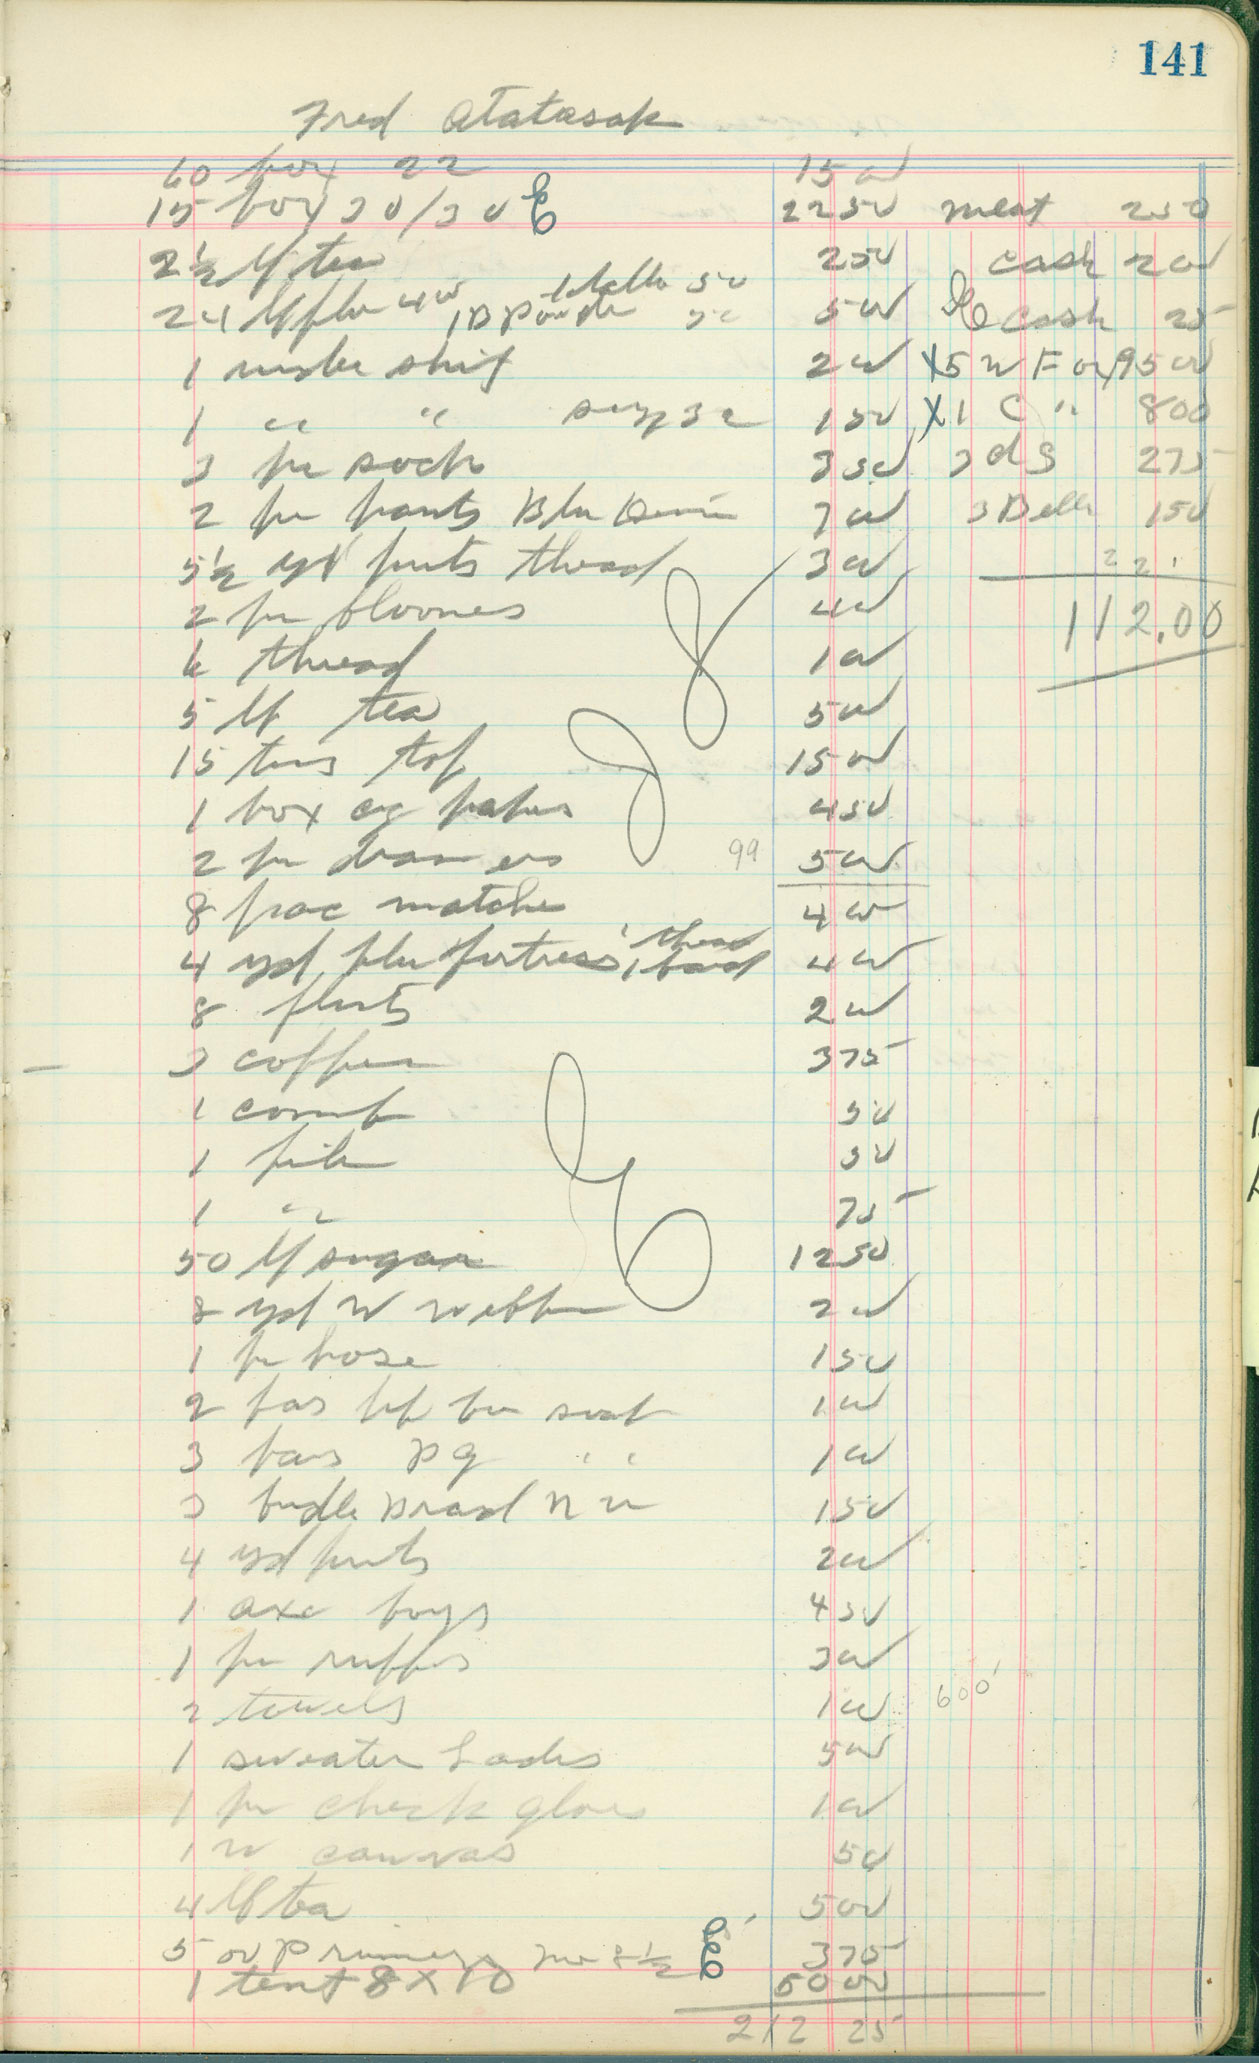 141
Fred Atatasak
10 box 22 15 00
15 box 30/30 22 50 meat 2 50
2½ lb tea 2 50 cash 2 00
24 lb 1 50 5 00 cash 25
1 under shirt 2 00 X 5 W Fox 95 00
1 " " 1 50 X 1 C " 8 00
3 pr socks 3 50 3 d S 2 75
2 pr pants Blu Denim 7 00 3 Bells 1 50
5½ yd prints thread 3 00 22
112.00
2 pr bloomes 4 00
6 thread 1 00
5 lb tea 5 00
15 tins tob 15 00
1 box cig papers 4 50
2 pr drawers 99 5 00
8 pac matches 4 00
4 yd blu fortress 1 thread 4 00
8 flints 2 00
3 coffee 3 75
1 comb 50
1 file 50
1 " 75
50 lb sugar 12 50
8 yd W 2 00
1 pr hose 1 50
2 bars 1 00
3 bars P G " " 1 00
3 1 50
4 yd prints 2 00
1 axe boys 4 50
1 pr 3 00
2 towels 1 00 600
1 sweater Lades 5 00
1 pr check gloves 1 00
1 canvas 50
4 lb tea 5 00
5 00 Primers no 8½ 3 75
1 tent 8 X 10 50 00
212 25